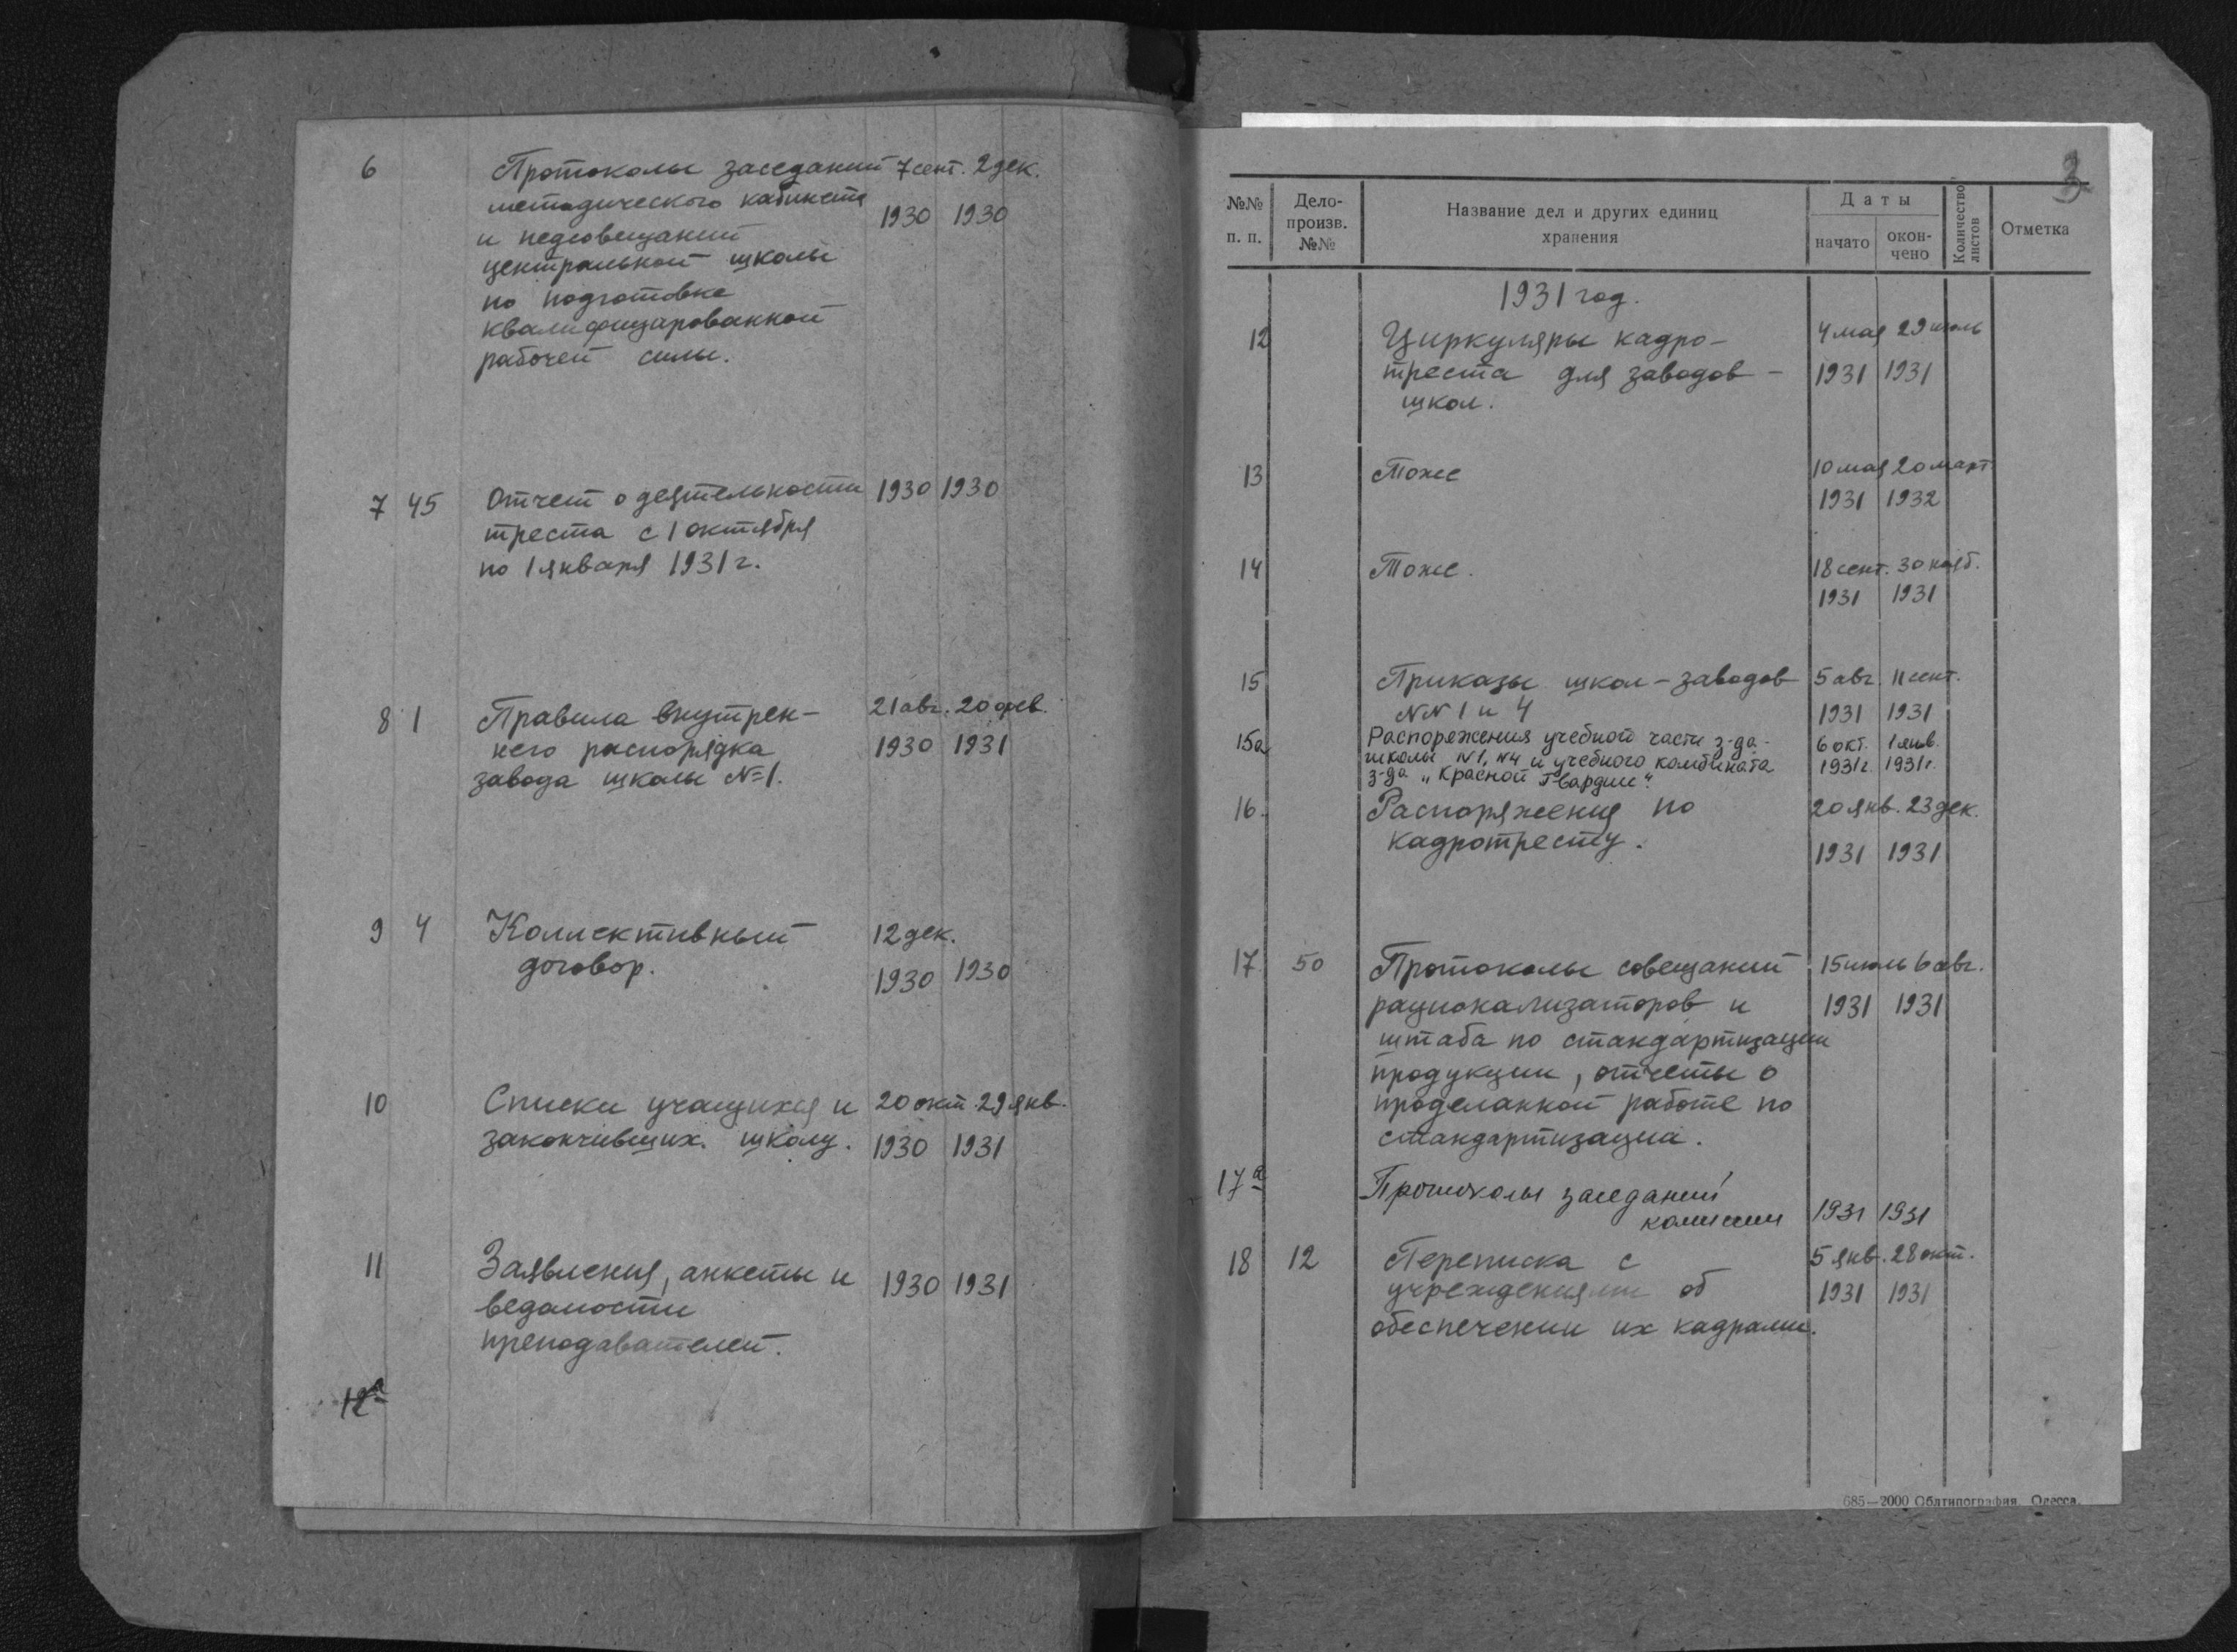 6 Протоколы заседаний 7 сент. 2 дек.
методического кабинета 1930 1930
и педсовещаний
центральной школы
по подготовке
квалифицированной
рабочей силы.
7 45 Отчет о деятельности 1930 1930
треста с 1 октября
по 1 января 1931 г.
8 1 Правила внутрен- 21 авг. 20 фев.
него распорядка 1930 1931
завода школы №1.
9 4 Коллективный 12 дек.
договор. 1930 1930
10 Списки учащихся и 20 окт. 29 янв.
закончивших школу. 1930 1931
11 Заявления, анкеты и 1930 1931
ведомости
преподавателей.
12а
3
№№ п. п. Дело-произв. №№ Название дел и других единиц хранения Даты начато окон-чено Количество листов Отметка
1931 год.
12 Циркуляры кадро- 4 мая 29 июль
треста для заводов - 1931 1931
школ.
13 Тоже 10 мая 20 март
1931 1932
14 Тоже. 18 сент. 30 нояб.
1931 1931
15 Приказы школ-заводов 5 авг. 11 сент.
NN 1 и 4 1931 1931
15а Распоряжения учебной части з-да- 6 окт. 1 янв.
школы N1, N4 и учебного комбината 1931г. 1931г.
з-да „Красной Гвардии".
16. Распоряжения по 20 янв. 23 дек.
кадротресту. 1931 1931
17. 50 Протоколы совещаний 15 июль 6 авг.
рационализаторов и 1931 1931
штаба по стандартизации
продукции, отчеты о
проделанной работе по
стандартизации.
17а Протоколы заседаний
комиссии 1931 1931
18 12 Переписка с 5 янв. 28 окт.
учреждениями об 1931 1931
обеспечении их кадрами.
685—2000 Облтипография, Одесса.